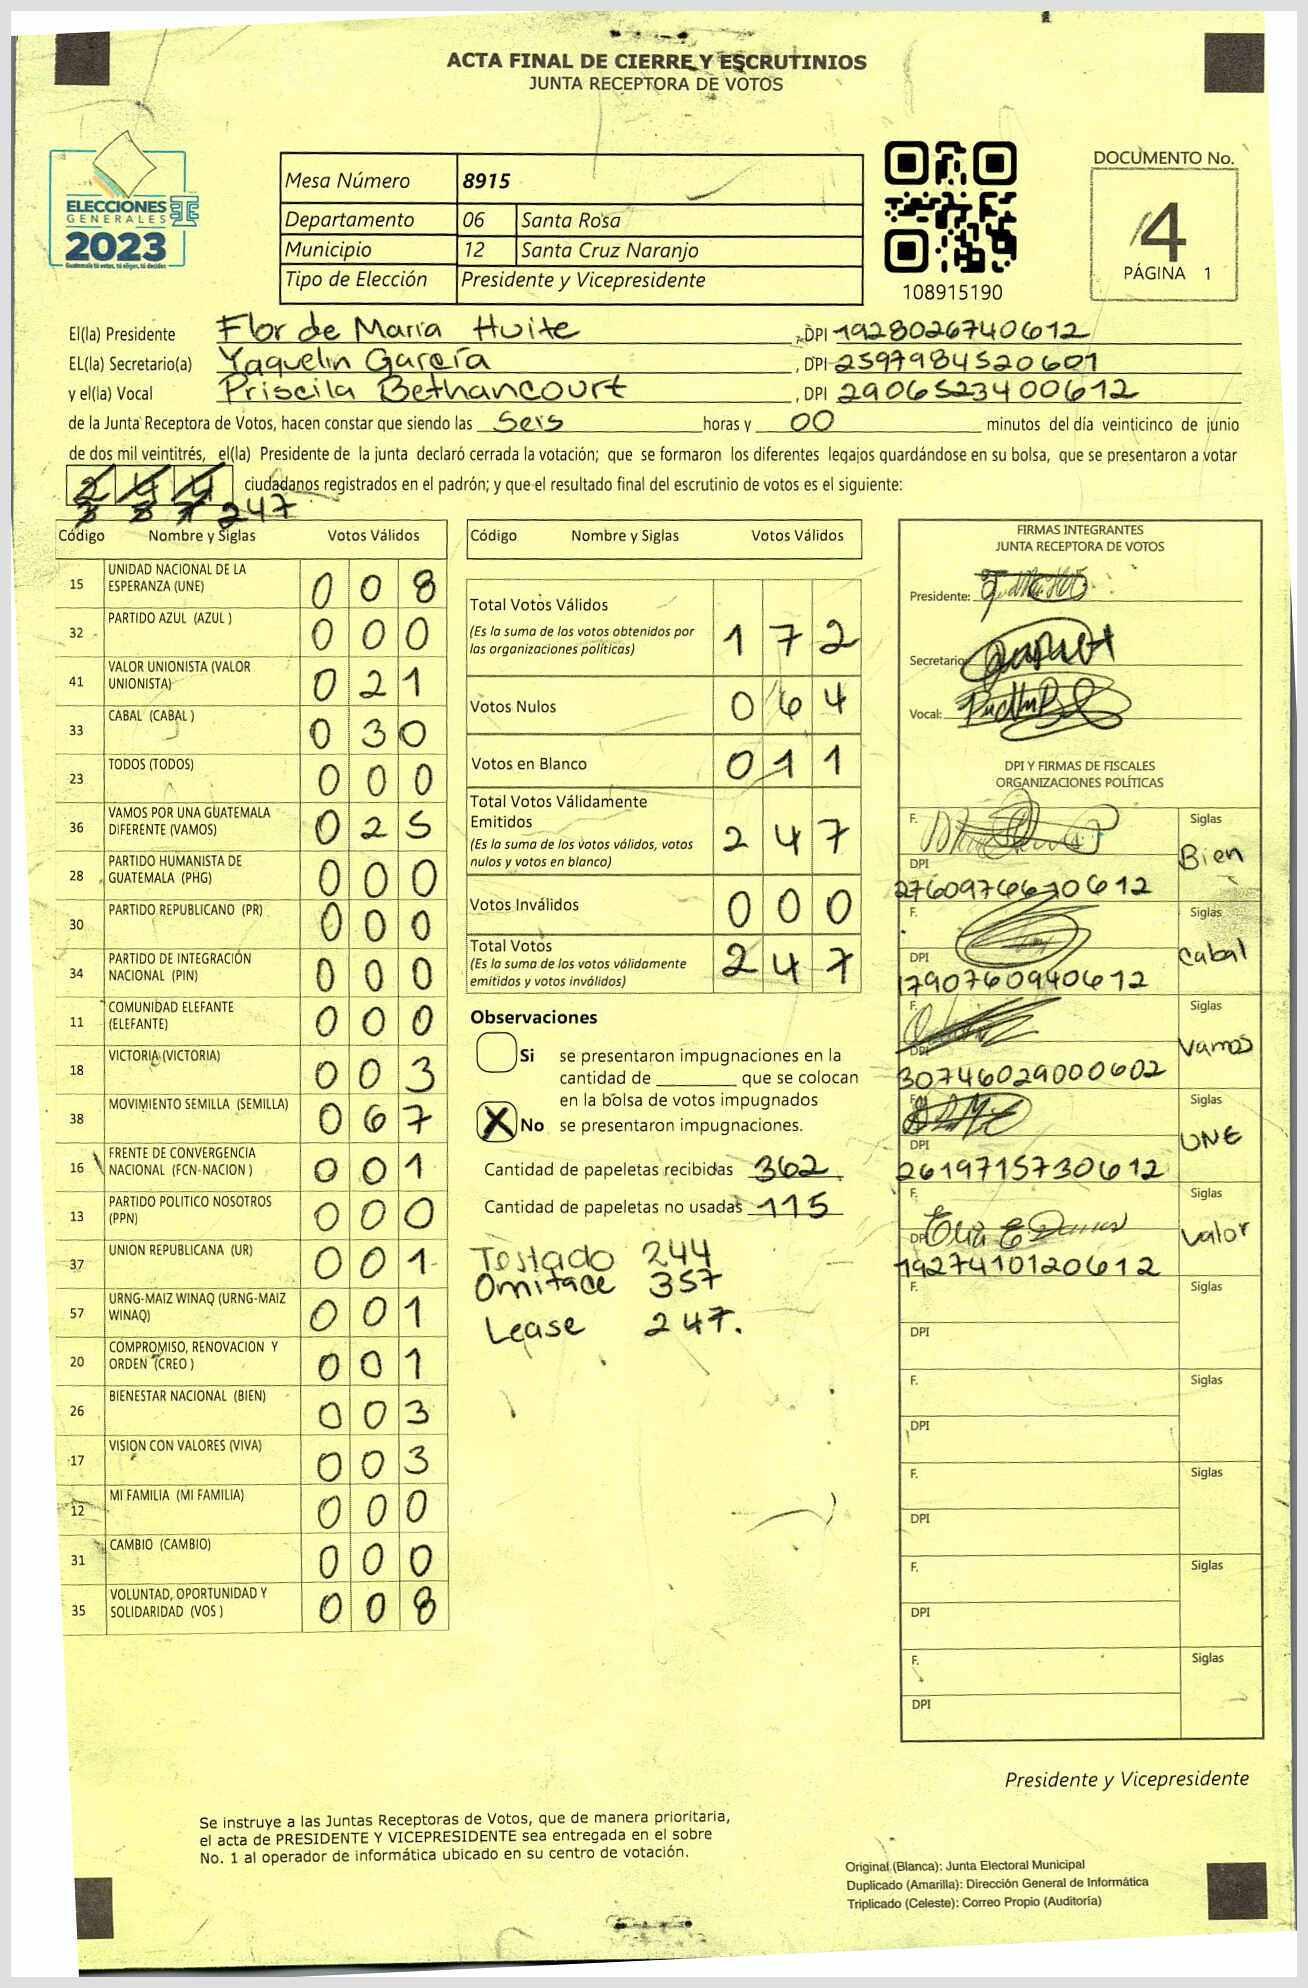 ACTA FINAL DE CIERRE Y ESCRUTINIOS
JUNTA RECEPTORA DE VOTOS
ELECCIONES
GENERALES
2023
Guatemala tú votas, tú eliges, tú decides
Mesa Número 8915
Departamento 06 Santa Rosa
Municipio 12 Santa Cruz Naranjo
Tipo de Elección Presidente y Vicepresidente
108915190
DOCUMENTO No.
4
PÁGINA 1
El(la) Presidente Flor de María Huite, DPI 1928026740612
EL(la) Secretario(a) Yaquelin García, DPI 2597984520601
y el(la) Vocal Priscila Bethancourt, DPI 2906523400612
de la Junta Receptora de Votos, hacen constar que siendo las Seis horas y 00 minutos del día veinticinco de junio
de dos mil veintitrés, el(la) Presidente de la junta declaró cerrada la votación; que se formaron los diferentes legajos guardándose en su bolsa, que se presentaron a votar
244 ciudadanos registrados en el padrón; y que el resultado final del escrutinio de votos es el siguiente:
247
Código Nombre y Siglas Votos Válidos
15 UNIDAD NACIONAL DE LA ESPERANZA (UNE) 0 0 8
32 PARTIDO AZUL (AZUL ) 0 0 0
41 VALOR UNIONISTA (VALOR UNIONISTA) 0 2 1
33 CABAL (CABAL ) 0 3 0
23 TODOS (TODOS) 0 0 0
36 VAMOS POR UNA GUATEMALA DIFERENTE (VAMOS) 0 2 5
28 PARTIDO HUMANISTA DE GUATEMALA (PHG) 0 0 0
30 PARTIDO REPUBLICANO (PR) 0 0 0
34 PARTIDO DE INTEGRACIÓN NACIONAL (PIN) 0 0 0
11 COMUNIDAD ELEFANTE (ELEFANTE) 0 0 0
18 VICTORIA (VICTORIA) 0 0 3
38 MOVIMIENTO SEMILLA (SEMILLA) 0 6 7
16 FRENTE DE CONVERGENCIA NACIONAL (FCN-NACION ) 0 0 1
13 PARTIDO POLITICO NOSOTROS (PPN) 0 0 0
37 UNION REPUBLICANA (UR) 0 0 1
57 URNG-MAIZ WINAQ (URNG-MAIZ WINAQ) 0 0 1
20 COMPROMISO, RENOVACION Y ORDEN (CREO ) 0 0 1
26 BIENESTAR NACIONAL (BIEN) 0 0 3
17 VISION CON VALORES (VIVA) 0 0 3
12 MI FAMILIA (MI FAMILIA) 0 0 0
31 CAMBIO (CAMBIO) 0 0 0
35 VOLUNTAD, OPORTUNIDAD Y SOLIDARIDAD (VOS ) 0 0 8
Código Nombre y Siglas Votos Válidos
Total Votos Válidos 1 7 2
(Es la suma de los votos obtenidos por
las organizaciones políticas)
Votos Nulos 0 6 4
Votos en Blanco 0 1 1
Total Votos Válidamente
Emitidos 2 4 7
(Es la suma de los votos válidos, votos
nulos y votos en blanco)
Votos Inválidos 0 0 0
Total Votos 2 4 7
(Es la suma de los votos válidamente
emitidos y votos inválidos)
Observaciones
Si se presentaron impugnaciones en la
cantidad de ________ que se colocan
en la bolsa de votos impugnados
X No se presentaron impugnaciones.
Cantidad de papeletas recibidas 362
Cantidad de papeletas no usadas 115
Testado 244
Omitace 357
Lease 247.
FIRMAS INTEGRANTES
JUNTA RECEPTORA DE VOTOS
Presidente:
Secretario:
Vocal:
DPI Y FIRMAS DE FISCALES
ORGANIZACIONES POLÍTICAS
F. Siglas
Bien
DPI
2760976670612
F. Siglas
Cabal
DPI
1790760940612
F. Siglas
Vamos
DPI
30746029000602
F. Siglas
UNE
DPI
2619715730612
F. Siglas
Valor
DPI
1927410120612
F. Siglas
DPI
F. Siglas
DPI
F. Siglas
DPI
F. Siglas
DPI
F. Siglas
DPI
Presidente y Vicepresidente
Se instruye a las Juntas Receptoras de Votos, que de manera prioritaria,
el acta de PRESIDENTE Y VICEPRESIDENTE sea entregada en el sobre
No. 1 al operador de informática ubicado en su centro de votación.
Original (Blanca): Junta Electoral Municipal
Duplicado (Amarilla): Dirección General de Informática
Triplicado (Celeste): Correo Propio (Auditoría)